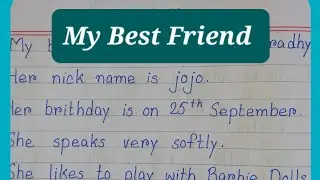 My Best Friend
My b
radhy
Her nick name is jojo.
Her brithday is on 25th September.
She speaks very softly.
She likes to play with Barbie Dolls